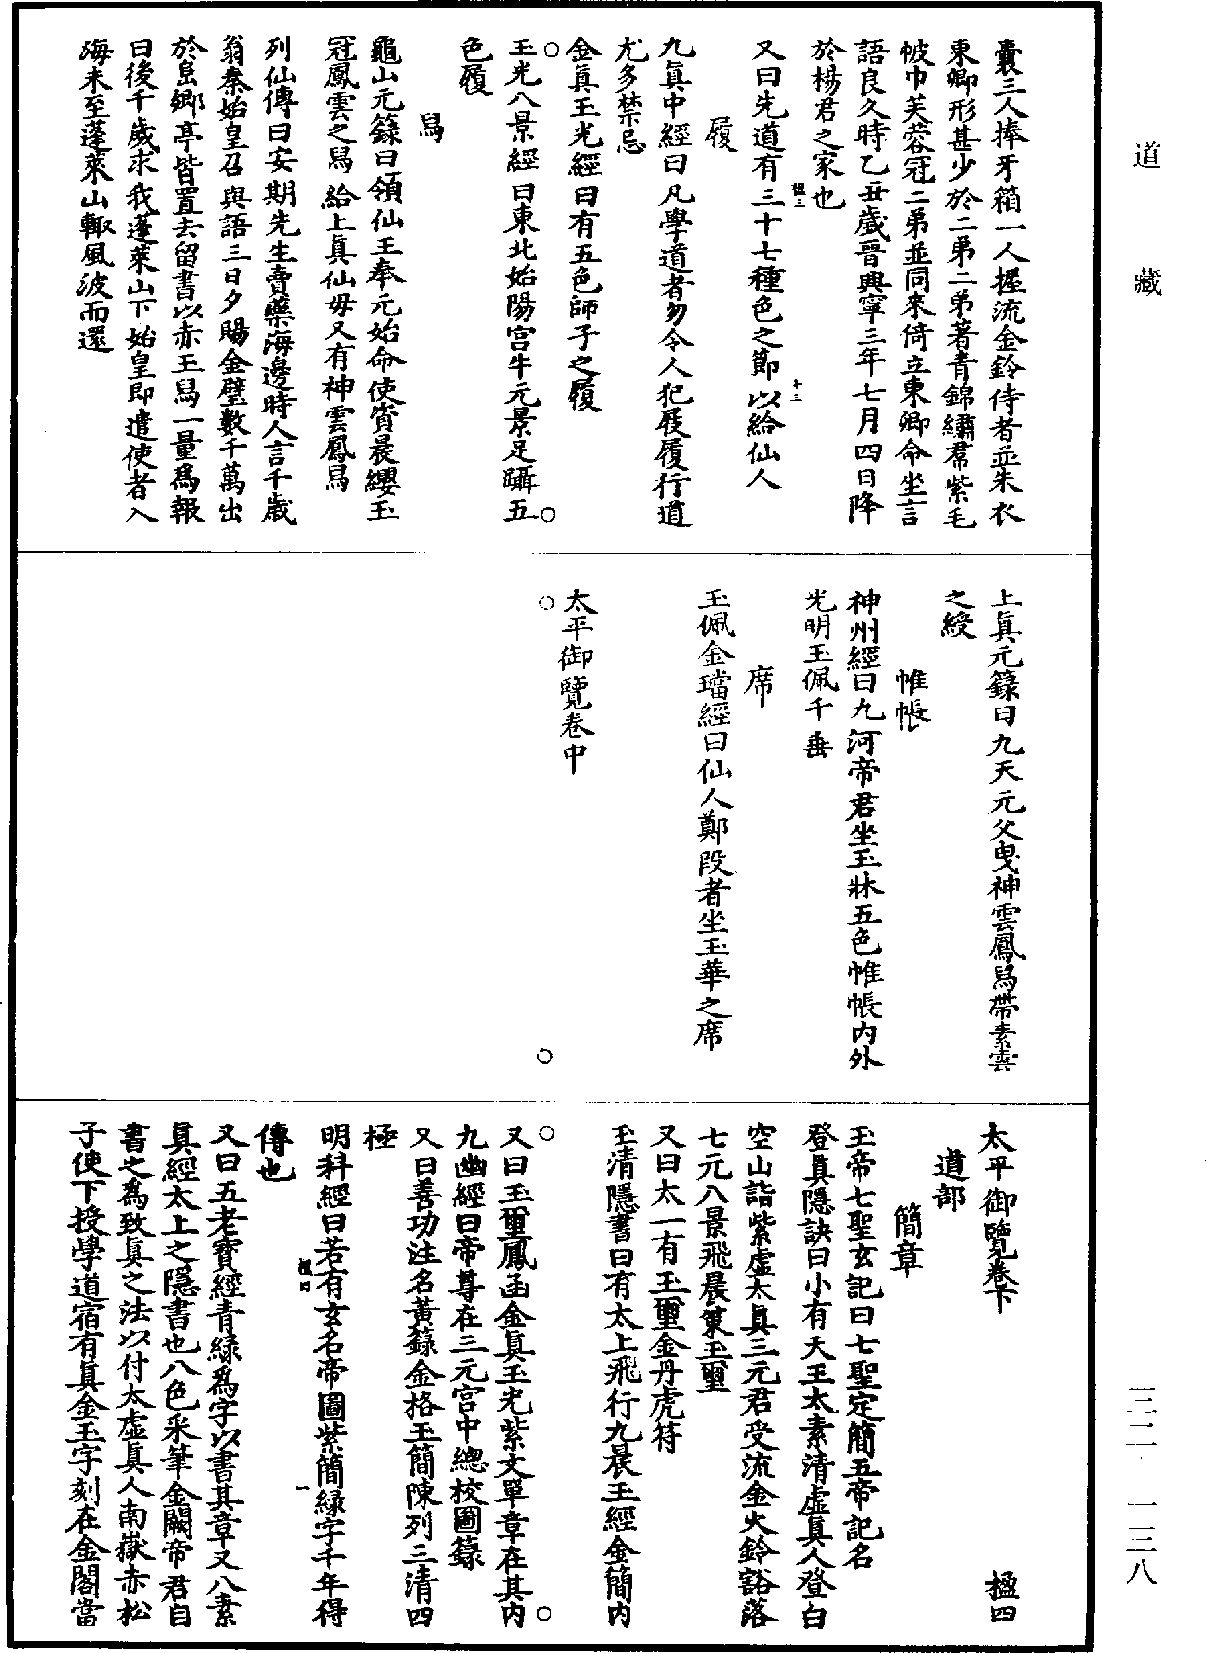 道藏
囊三人捧牙箱一人握流金鈴侍者並朱衣
東卿形甚少於二弟二弟著青錦繡帬紫毛
帔巾芙蓉冠二弟並同來倚立東卿命坐言
語良久時乙丑歲晉興寧三年七月四日降
於楊君之家也
楹三
十三
又曰先道有三十七種色之節以給仙人
履
九真中經曰凡學道者勿令人犯屐履行道
尤多禁忌
金真玉光經曰有五色師子之履
玉光八景經曰東北始陽宮牛元景足躡五
色履
舄
龜山元籙曰領仙玉奉元始命使賓晨纓玉
冠鳳雲之舄給上真仙母又有神雲鳳舄
列仙傳曰安期先生賣藥海邊時人言千歲
翁秦始皇召與語三日夕賜金璧數千萬出
於阜鄉亭皆置去留書以赤玉舄一量為報
曰後千歲求我蓬萊山下始皇即遣使者入
海未至蓬萊山輙風波而還
上真元籙曰九天元父曳神雲鳳舄帶素雲
之綬
帷帳
神州經曰九河帝君坐玉牀五色帷帳內外
光明玉佩千垂
席
玉佩金璫經曰仙人鄭段者坐玉華之席
太平御覽卷中
太平御覽卷下
楹四
道部
簡章
玉帝七聖玄記曰七聖定簡五帝記名
登真隱訣曰小有天王太素清虛真人登白
空山詣紫虛太真三元君受流金火鈴豁落
七元八景飛晨策玉璽
又曰太一有玉璽金丹虎符
玉清隱書曰有太上飛行九晨玉經金簡內
又曰玉璽鳳函金真玉光紫文單章在其內
九幽經曰帝尊在三元宮中總校圖籙
又曰善功注名黃籙金格玉簡陳列三清四
極
明科經曰若有玄名帝圖紫簡綠字千年得
楹四
一
傳也
又曰五老寶經青綠為字以書其章又八素
真經太上之隱書也八色采筆金闕帝君自
書之為致真之法以付太虛真人南嶽赤松
子使下授學道宿有真金玉字刻在金閣當
三二 一三八